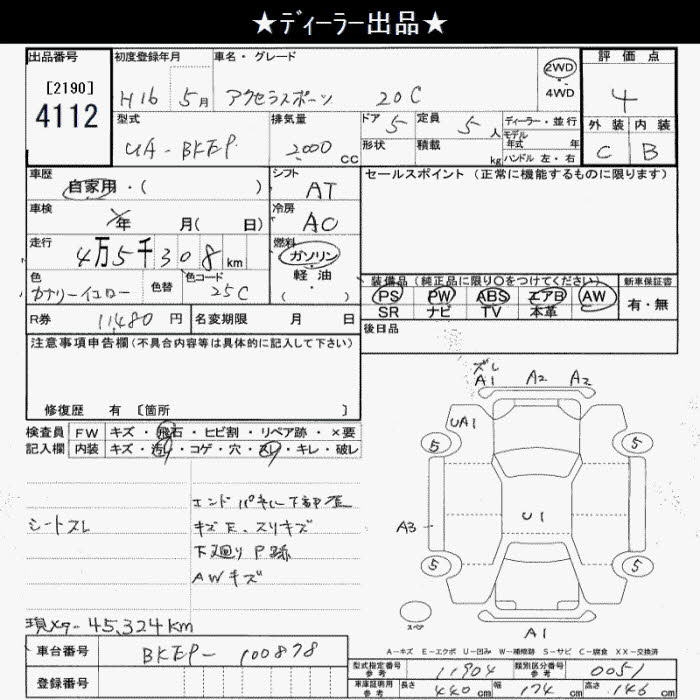 ★ディーラー出品★
出品番号 初度登録年月 車名・グレード 2WD 評価点
[2190] H16 5月 アクセラスポーツ 20C 4WD 4
4112 型式 排気量 ドア 5 定員 5人 ディーラー・並行 外装 内装
UA-BKEP 2000cc 形状 積載 kg モデル年式 年 C B
ハンドル 左・右
車歴 自家用・( ) シフト AT セールスポイント (正常に機能するものに限ります)
車検 年 月( 日) 冷房 AC
走行 4万5千308km 燃料 ガソリン・軽油・( )
色 カナリーイエロー 色替 色コード 25C 装備品 (純正品に限り○をつけてください) 新車保証書
PS PW ABS エアB AW 有・無
SR ナビ TV 本革
R券 11480円 名変期限 月 日 後日品
注意事項申告欄(不具合内容等は具体的に記入して下さい)
修復歴 有 [箇所 ]
検査員 FW キズ・飛石・ヒビ割・リペア跡・×要
記入欄 内装 キズ・汚れ・コゲ・穴・スレ・キレ・破レ
ズレ
A1 A2 A2
UA1
5 5
A3 U1
5 5
スペア
A1
シートスレ
キズ 、スリキズ
下廻り P跡
AWキズ
現メーター 45,324km
A-キズ E-エクボ U-凹み W-補修跡 S-サビ C-腐食 XX-交換済
車台番号 BKEP-100878
登録番号
型式指定番号 参考 11904 類別区分番号 参考 0051
車庫証明用 参考 長さ 440cm 幅 174cm 高さ 146cm